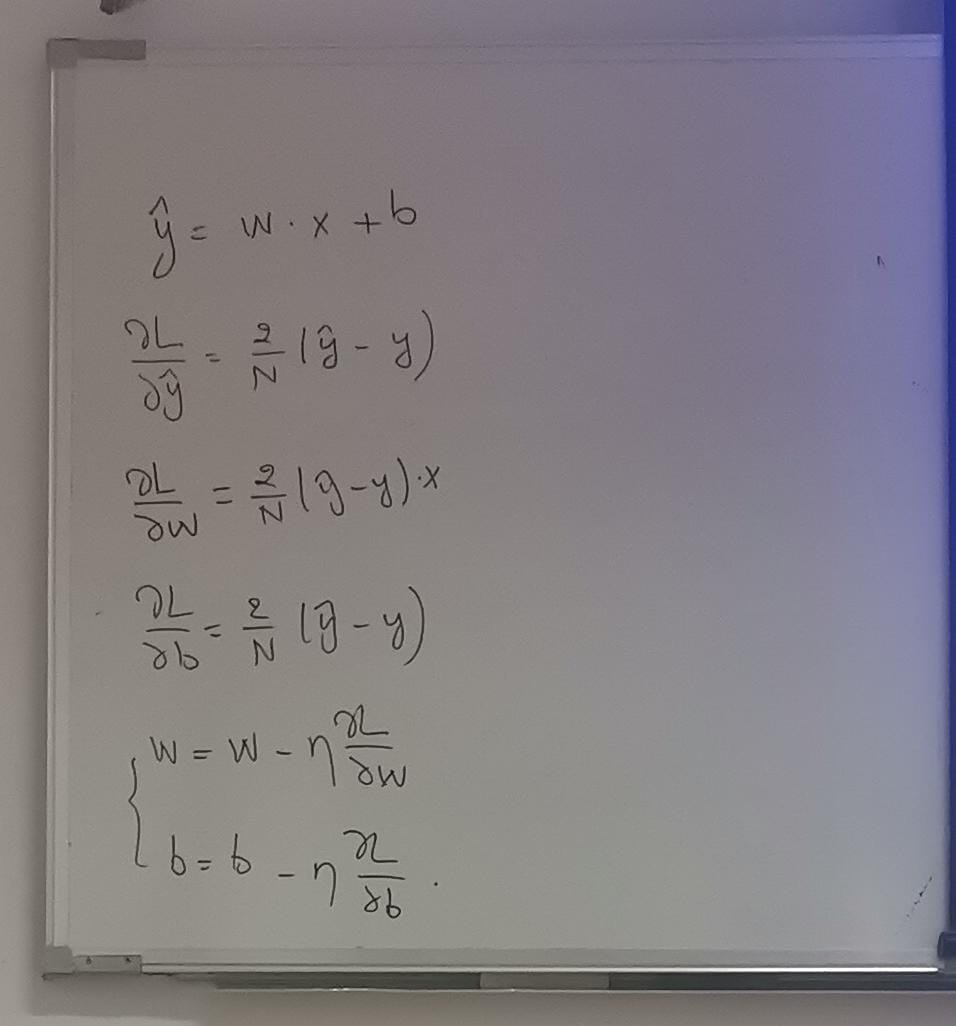 ŷ = w · x + b
∂L/∂ŷ = 2/N (ŷ - y)
∂L/∂w = 2/N (ŷ - y) · x
∂L/∂b = 2/N (ŷ - y)
{ w = w - η ∂L/∂w
b = b - η ∂L/∂b .